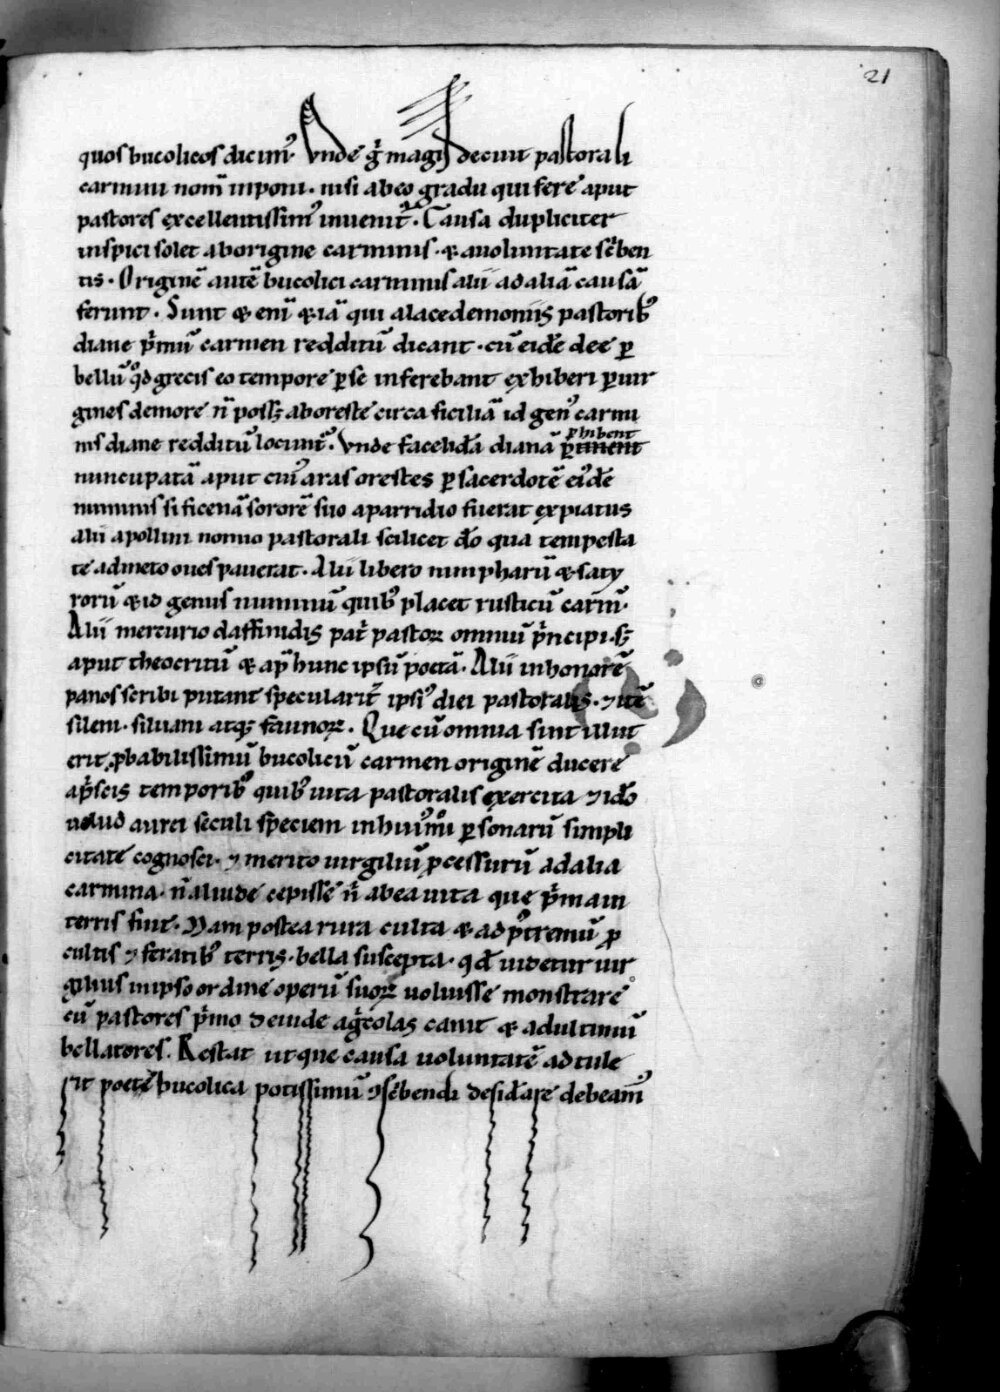 21
quos bucolicos dicim᾽. Vnde g̾ magis decuit pastorali
carmini nom̅ inponi. nisi ab eo gradu qui fere aput
pastores excellentissim᾽ inuenit᷑. Causa dupliciter
inspici solet ab origine carminis. & a uoluntate sc̅ben
tis. Origine̅ aute̅ bucolici carminis alii ad alia̅ causa̅
ferunt. Sunt & eni̅ & ia̅ qui a lacedemoniis pastorib᾽
diane p̾mu̅ carmen redditu̅ dicant. cu̅ eide̅ dee ꝑ
bellu̅ qd̾ grecis eo tempore ꝑse inferebant exhiberi ꝑ uir
gines de more n̅ poss& ab oreste circa sicilia̅ id gen᾽ carmi
nis diane redditu̅ locunt᷑. Vnde facelida̅ diana̅ ꝑtinent
ꝑhibent
nuncupata̅ aput cui᾽ aras orestes ꝑ sacerdote̅ ei᾽de̅
numinis si ficena̅ sorore̅ suo a parridio fuerat expiatus
Alii apollini nomio pastorali scilicet do̅ qua tempesta
te admeto oues pauerat. Alii libero nimpharu̅ & saty
roru̅ & id genus numinu̅ quib᾽ placet rusticu̅ carm̅.
Alii mercurio daffinidis pat̾ pastoꝝ omniu̅ p̾ncipi. s&
aput theocritu̅ & ap̅ hunc ipsu̅ poeta̅. Alii in honore̅
panos scribi putant specularit̾ ipsi᾽ diei pastoralis. ⁊ ite̅
sileni. siluani atq; faunoꝝ. Que cu̅ omnia sint illut
erit ꝓbabilissimu̅ bucolicu̅ carmen origine̅ ducere
a p̾scis temporib᾽ quib᾽ uita pastoralis exercita ⁊ ido̅
uelud aurei seculi speciem in hui᾽mi̊ ꝑsonaru̅ simpli
citate cognosci. ⁊ merito uirgiliu̅ ꝓcessuru̅ ad alia
carmina. n̅ aliude cepisse n̾ ab ea uita que p̾ma in
terris fuit. Nam postea rura culta & ad p᾽tremu̅ ꝓ
cultis ⁊ feratib᾽ terris. bella suscepta. qd̅ uidetur uir
gilius in ipso ordine operu̅ suoꝝ uoluisse monstrare
cu̅ pastores p̾mo deinde ag̾colas canit & ad ultimu̅
bellatores. Restat ut que causa uoluntate̅ adtule
rit poete̅ bucolica potissimu̅ ꝯsc̅bendi desid̅are debeam᾽